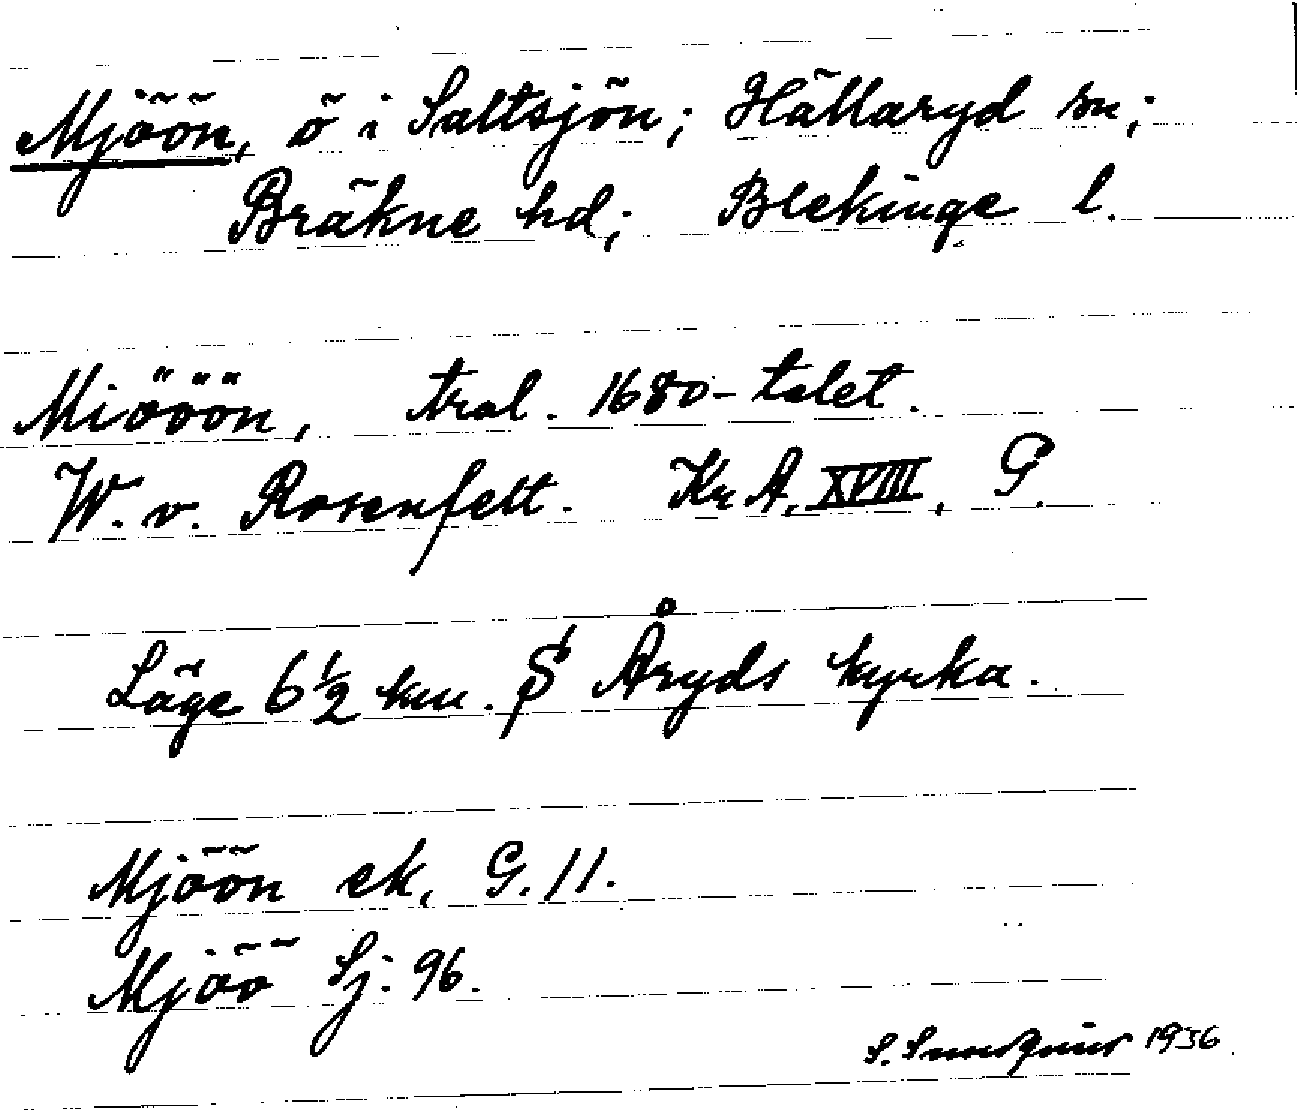 Mjöön, ö i Saltsjön; Hällaryd sn;
Bräkne hd; Blekinge l.
Miööön, tral. 1680-talet.
W. v. Rosenfelt. Kr A. XVIII, G.
Läge 6½ km. S Åryds kyrka.
Mjöön ek. G. 11.
Mjöö Sj. 96.
S. 1936